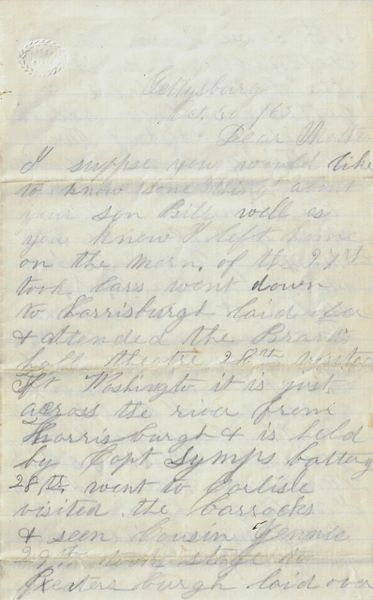 Gettysburg
Oct. 30 /63
Dear Mother
I suppse you would like
to know some thing about
your son Bill well as
you know I left home
on the morn. of the 27st
took cars went down
to Harrisburgh laid over
& attended the Brants
hall theatre 28th visited
Ft Washington it is just
across the river from
Harrisburgh & is held
by Capt Symps battay
28th went to Carlisle
visited the barrocks
& seen Cousin Jennie
29th took stage to
Peeters burgh laid over